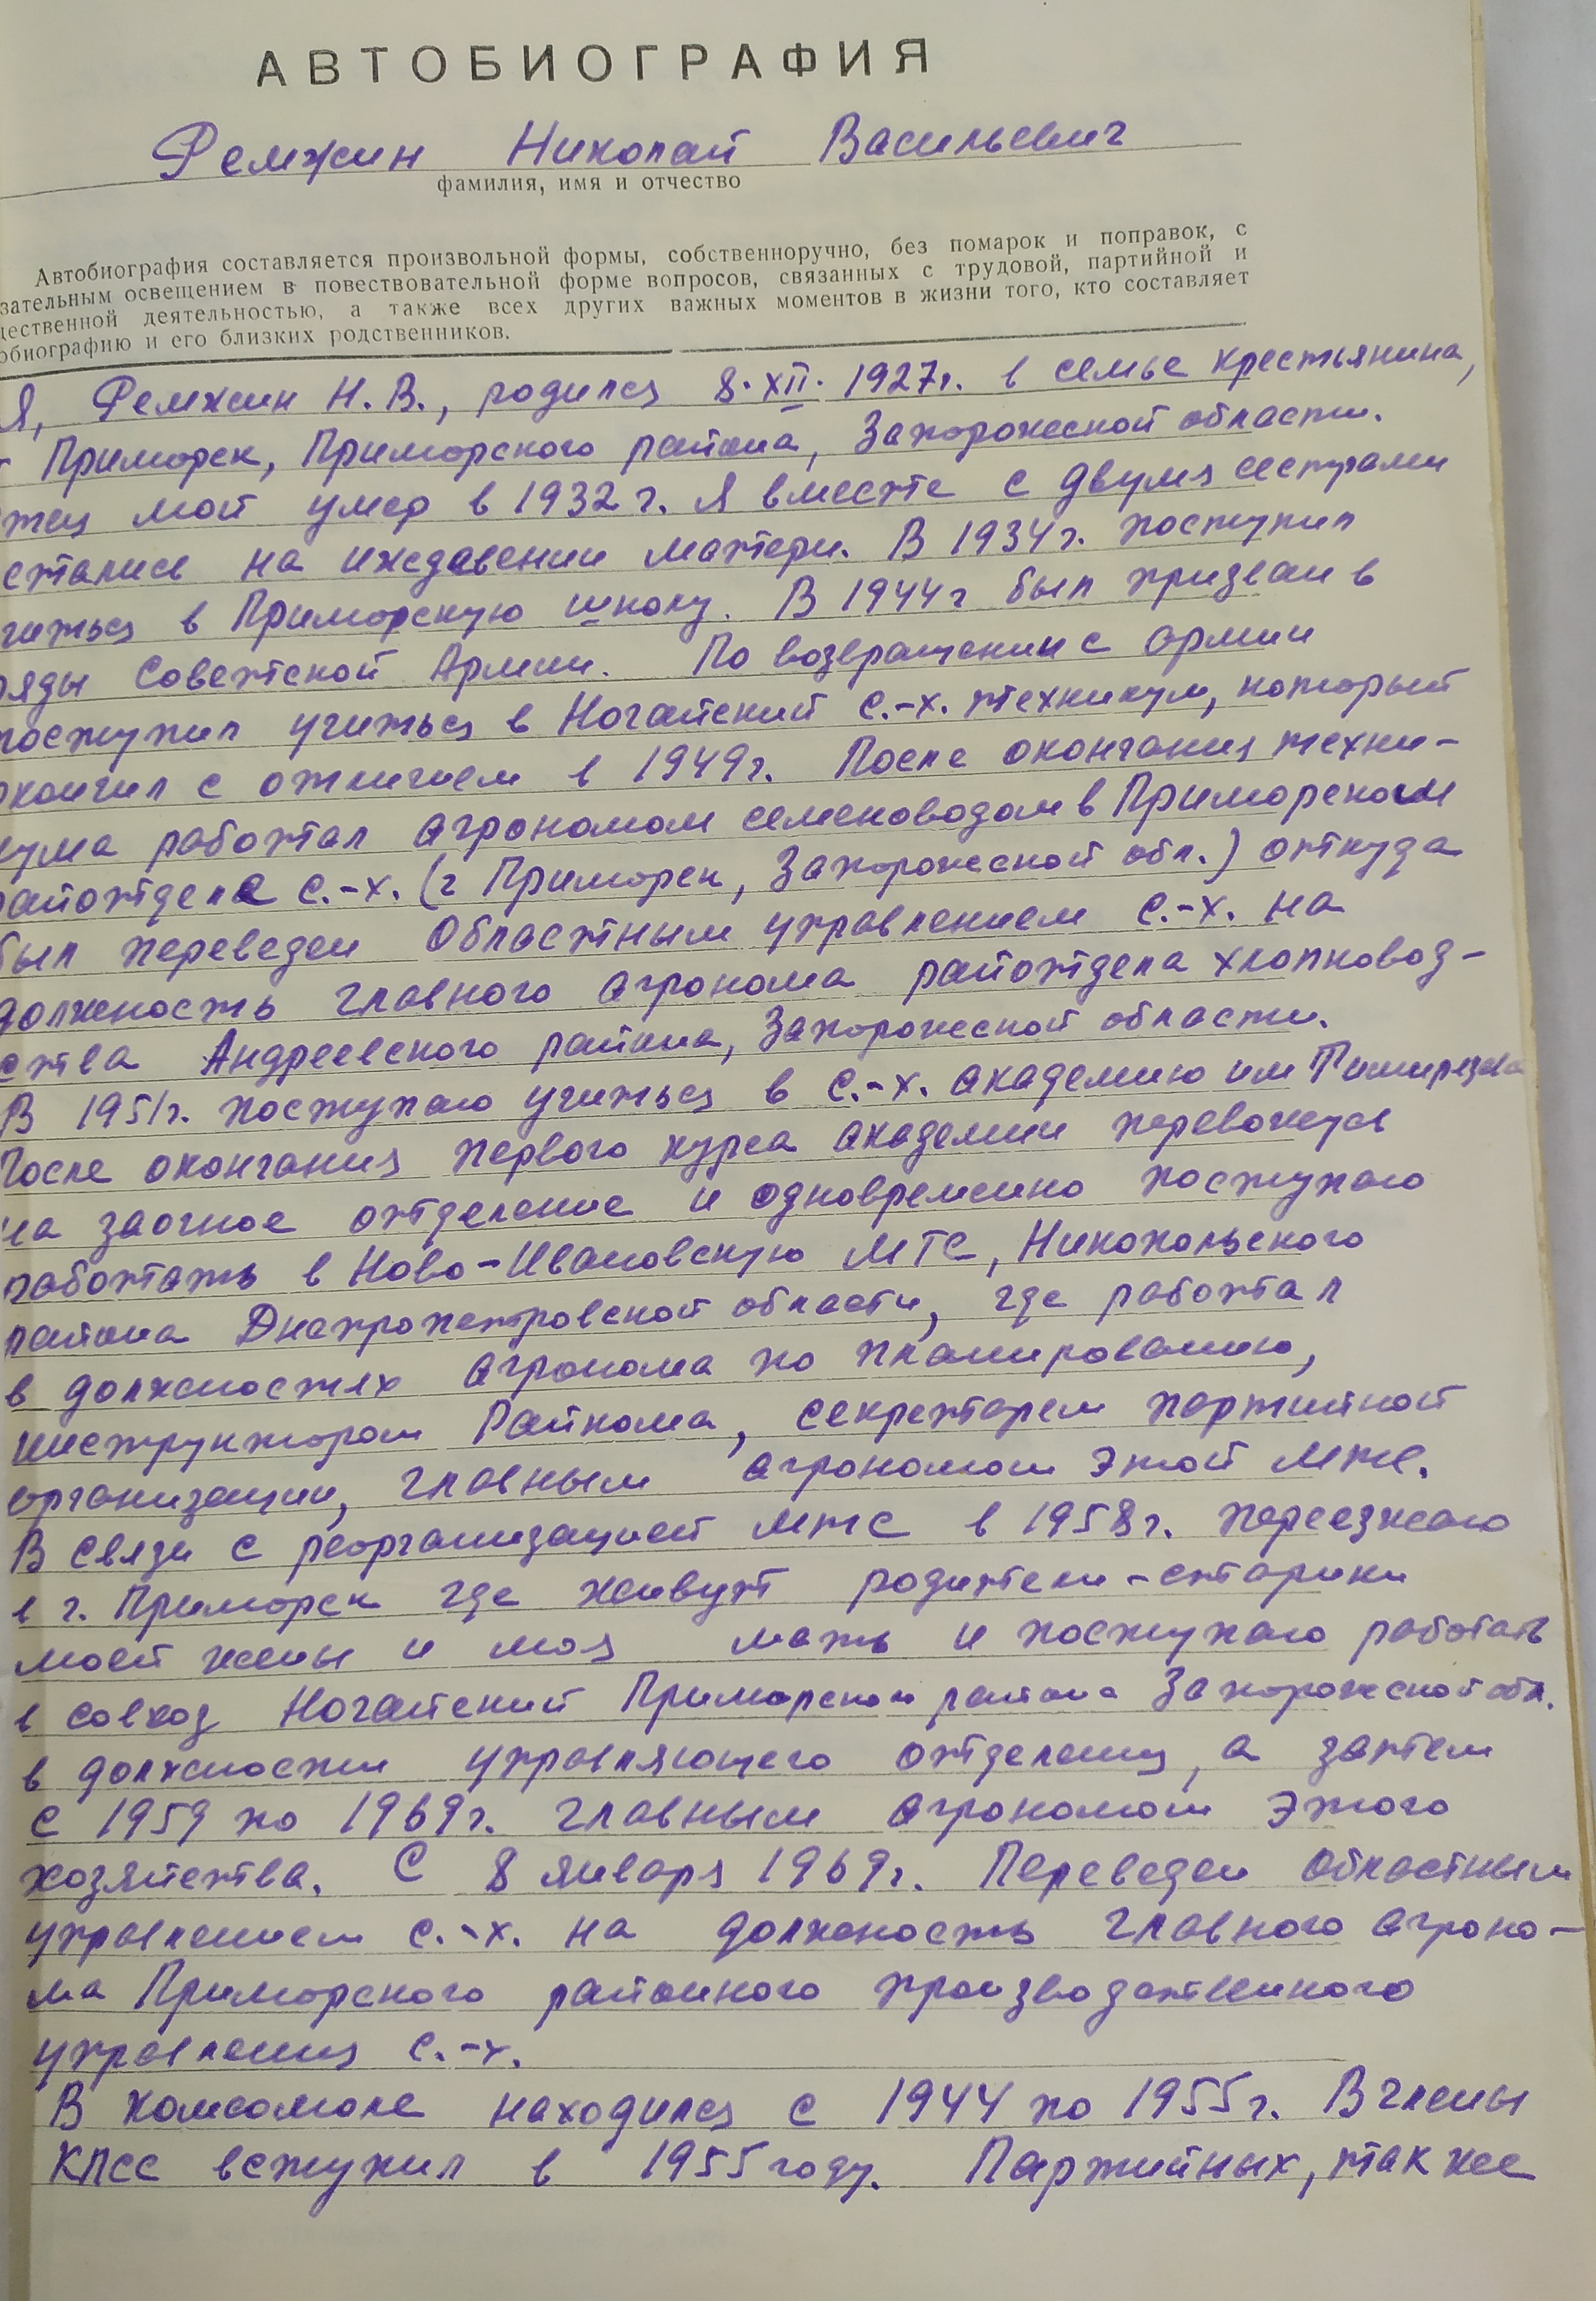 АВТОБИОГРАФИЯ
Фемжин Николай Васильевич
фамилия, имя и отчество
Автобиография составляется произвольной формы, собственноручно, без помарок и поправок, с
зательным освещением в повествовательной форме вопросов, связанных с трудовой, партийной и
щественной деятельностью, а также всех других важных моментов в жизни того, кто составляет
обиографию и его близких родственников.
Я, Фемжин Н. В., родился 8.XII. 1927г. в семье крестьянина,
г Приморск, Приморского района, Запорожской области.
тец мой умер в 1932г. Я вместе с двумя сестрами
стались на иждевении матери. В 1934г. поступил
читься в Приморскую школу. В 1944г был призван в
ряды Советской Армии. По возвращении с армии
поступил учиться в Ногайский с.-х. техникум, который
окончил с отличием в 1949г. После окончания техни-
кума работал агрономом семеноводом в Приморском
райотделе с.-х. (г Приморск, Запорожской обл.) откуда
был переведен Областным управлением с.-х. на
должность главного агронома райотдела хлопковод-
ства Андреевского района, Запорожской области.
В 1951г. поступаю учиться в с.-х. академию им Тимирязева
После окончания первого курса академии перевожусь
на заочное отделение и одновременно поступаю
работать в Ново-Ивановскую МТС, Никопольского
района Днепропетровской области, где работал
в должностях агронома по планированию,
инструктором Райкома, секретарем партийной
организации, главным агрономом этой МТС.
В связи с реорганизацией МТС в 1958г. переезжаю
в г. Приморск где живут родители-старики
моей жены и моя мать и поступаю работать
в совхоз Ногайский Приморском района Запорожской обл.
в должности управляющего отделения, а затем
с 1959 по 1969г. главным агрономом этого
хозяйства. С 8 января 1969г. Переведен областным
управлением с.-х. на должность главного агроно-
ма Приморского районного производственного
управления с.-х.
В комсомоле находился с 1944 по 1955г. В члены
КПСС вступил в 1955 году. Партийных, так же